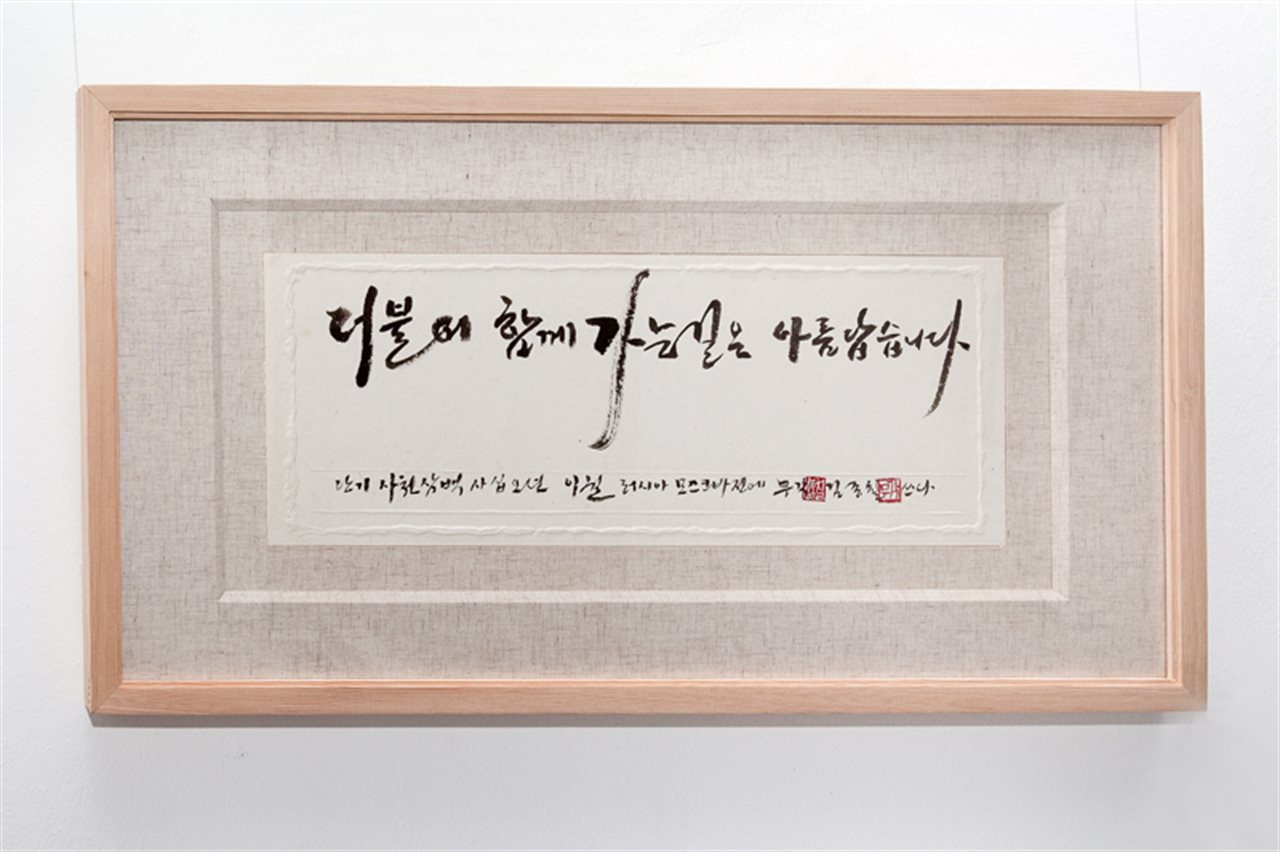 더불어 함께 가는길은 아름답습니다.
단기 사천삼백 사십오년 이월 러시아 모스크바전에 무각 김종칠 쓰다.